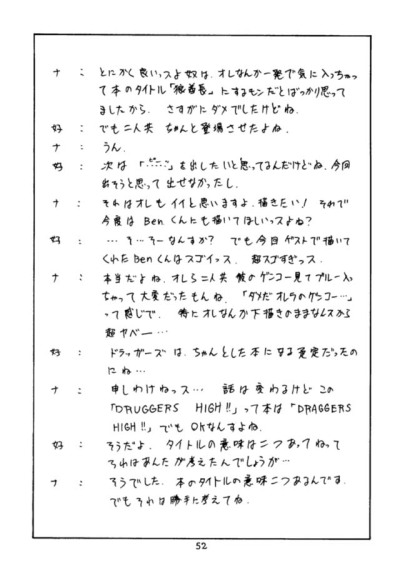 ナ： とにかく良いっスよ奴は、オレなんか一発で気に入っちゃっ
て本のタイトル「独首長」にするモンだとばっかり思って
ましたから。さすがにダメでしたけどね。
好： でも二人共 ちゃんと登場させたよね。
ナ： うん。
好： 次は「 」を出したいと思ってるんだけどね、今回
出そうと思って出せなかったし。
ナ： それはオレもイイと思いますよ、描きたい! それで
今度は Ben くんにも描いてほしいっスよね?
好： … そ…そーなんすか? でも今回ゲストで描いて
くれた Ben くんはスゴイっス。 超スゴすぎっス。
ナ： 本当だよね、オレら二人共 彼のゲンコー見てブルー入っ
ちゃって大変だったもんね、「ダメだオレラのゲンコー…」
って感じで。 特にオレなんか下描きのままなんスから
超ヤベー―…
好： ドラッガーズ は、ちゃんとした本になる予定だったの
にね…
ナ： 申しわけねっス… 話は変わるけど この
「DRUGGERS HIGH!!」って本は「DRAGGERS
HIGH!!」でも OKなんすよね。
好： そうだよ、タイトルの意味は二つあってねって
それはあんたが考えたんでしょうが…
ナ： そうでした。本のタイトルの意味二つあるんです。
でもそれは勝手に考えてね。
52